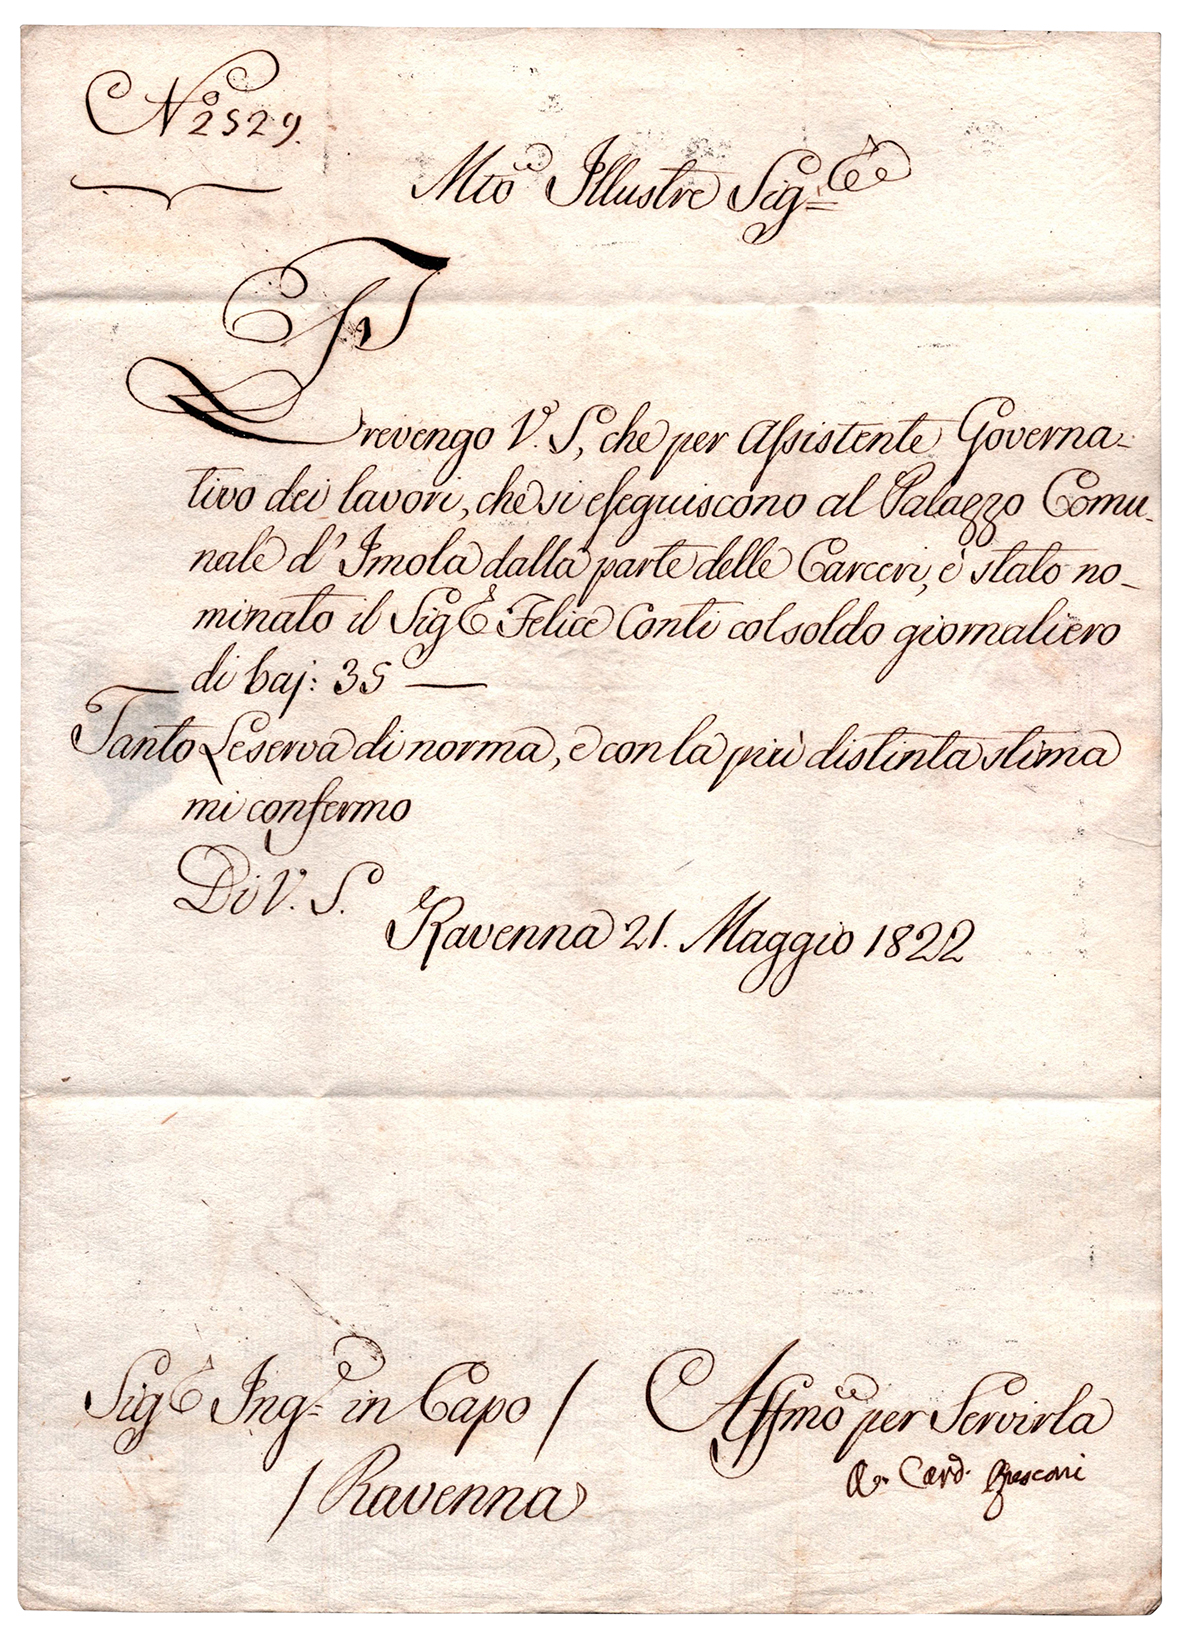 N.º 2529.
Mto Illustre Sig.re
Prevengo V. S, che per Assistente Governa-
tivo dei lavori, che si eseguiscono al Palazzo Comu-
nale d' Imola dalla parte delle Carceri, è stato no-
minato il Sig.r Felice Conti col soldo giornaliero
di baj: 35 —
Tanto Le serva di norma, e con la più distinta stima
mi confermo
Di V. S.
Ravenna 21. Maggio 1822
Sig.r Ing.e in Capo /
/ Ravenna
Affmo per Servirla
Card.